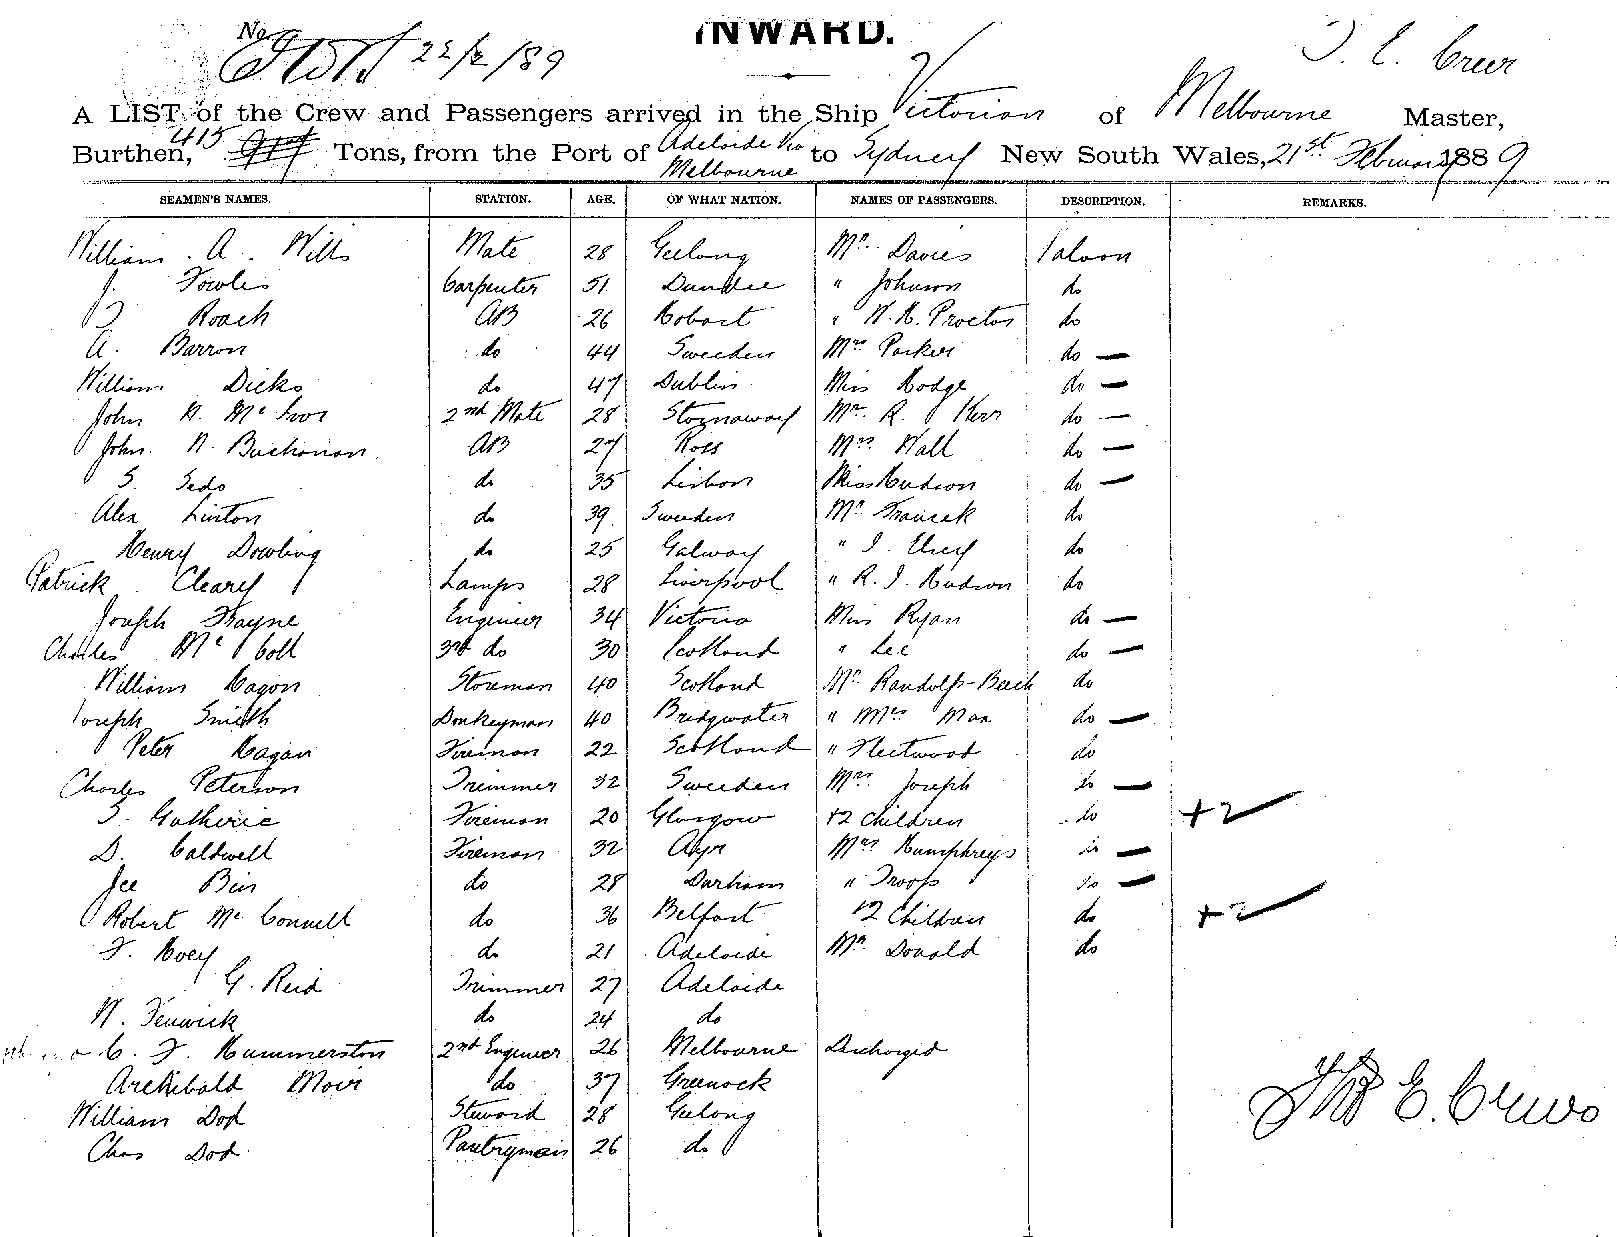 No.
22/2/89
INWARD.
T. E. Crews
A LIST of the Crew and Passengers arrived in the Ship Victorian of Melbourne Master,
Burthen, 415 Tons, from the Port of Adelaide Via Melbourne to Sydney New South Wales, 21st February 1889
SEAMEN'S NAMES. STATION. AGE. OF WHAT NATION. NAMES OF PASSENGERS. DESCRIPTION. REMARKS.
William A. Wills Mate 28 Geelong Mr. Davies Saloon
J. Fowles Carpenter 51 Dundee " Johnson do
J Roach AB 26 Hobart " W. H. Proctor do
A. Barron do 44 Sweeden Mrs Parker do —
William Dicks do 47 Dublin Miss Hodge do —
John N. Mc Ivor 2nd Mate 28 Stornaway Mr. R. Kerr do —
John N. Buchanan AB 27 Ross Mrs. Wall do —
S. Sedo do 35 Lisbon Miss Hudson do —
Alex Linton do 39 Sweeden Mr do
Henry Dowling do 25 Galway " J. do
Patrick Cleary Lamps 28 Liverpool " R. J. Hudson do
Joseph Frayne Engineer 34 Victoria Miss Ryan do —
Charles Mc Coll 3rd do 30 Scotland " Lee do —
William Hagon Storeman 40 Scotland Mr. Randolph-Bach do
Joseph Smith Donkeyman 40 Bridgwater " Mrs Max do —
Peter Hagan Fireman 22 Scotland " Fleetwood do
Charles Peterson Trimmer 32 Sweeden Mrs Joseph do —
S. Guthrie Fireman 20 Glasgow +2 Children do +2
D. Caldwell Fireman 32 Ayr Mrs Humphreys do —
Bin do 28 Durham " Troop do —
Robert Mc Connell do 36 Belfast +2 Children do +2
F. Hoey do 21 Adelaide Mr. Donald do
G. Reid Trimmer 27 Adelaide
N. Fenwick do 24 do
C. F. Hummerston 2nd Engineer 26 Melbourne Discharged
Archibald Moir do 37 Greenock
William Dod Steward 28 Geelong
Chas Dod Pantryman 26 do
Thos E. Crews